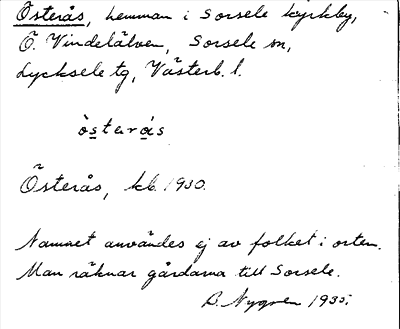 Österås, hemman i Sorsele kyrkby,
Ö. Vindelälven, Sorsele sn,
Lycksele tg, Västerb. l.
òsterás
Österås, kb. 1930.
Namnet användes ej av folket i orten.
Man räknar gårdarna till Sorsele.
B. Nygren 1935.